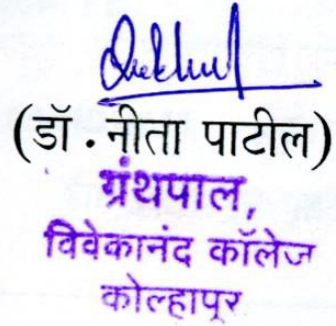 (डॉ. नीता पाटील)
ग्रंथपाल,
विवेकानंद कॉलेज
कोल्हापूर